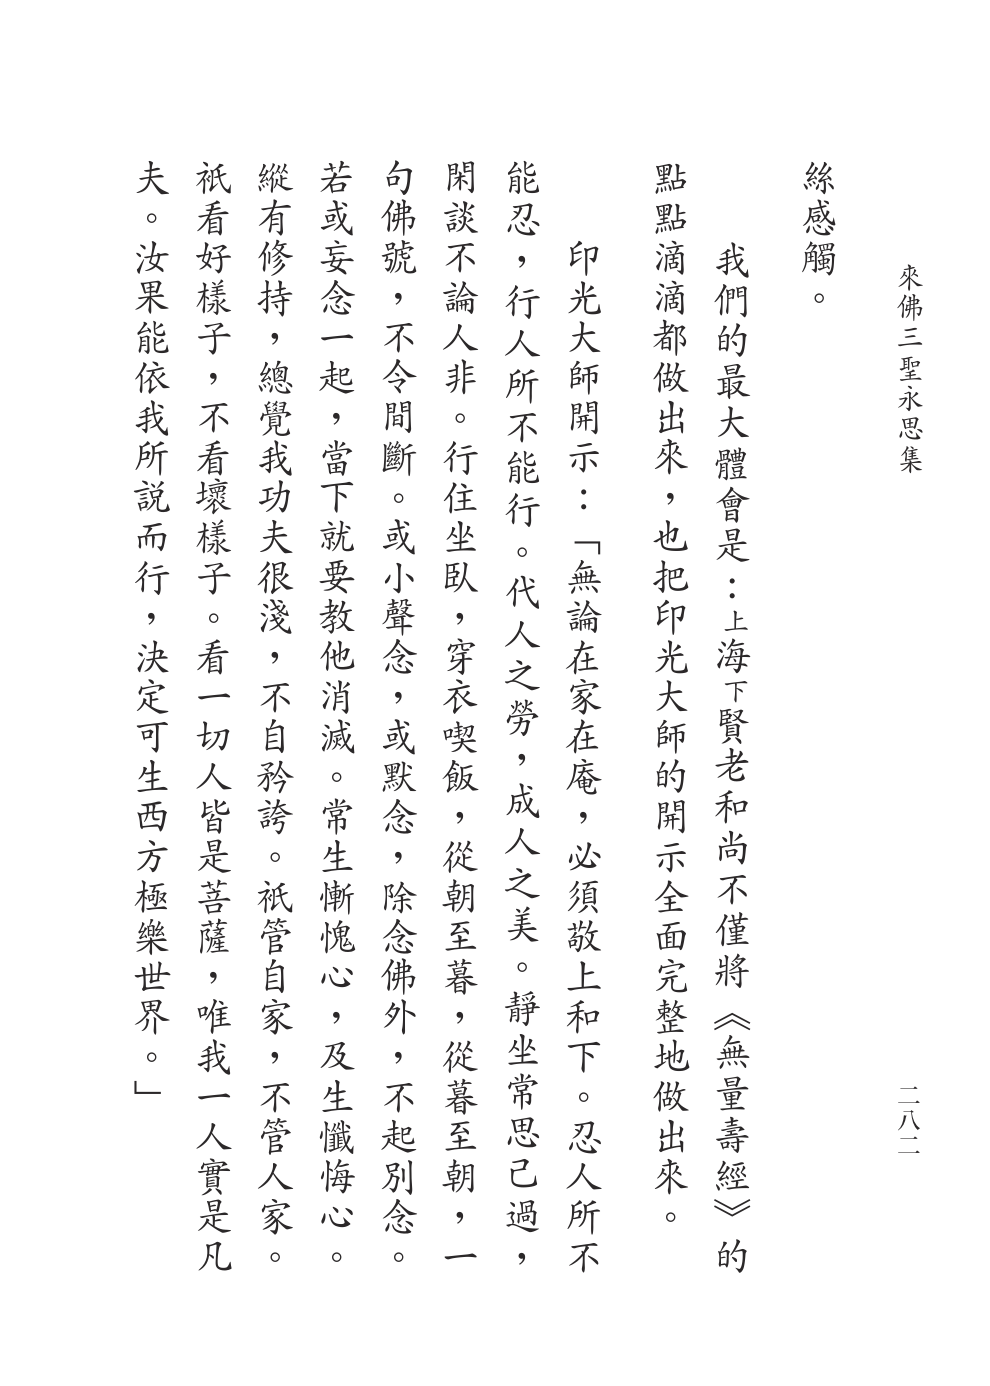 來佛三聖永思集
二八二
絲感觸。
我們的最大體會是：上海下賢老和尚不僅將《無量壽經》的
點點滴滴都做出來，也把印光大師的開示全面完整地做出來。
印光大師開示：「無論在家在庵，必須敬上和下。忍人所不
能忍，行人所不能行。代人之勞，成人之美。靜坐常思己過，
閑談不論人非。行住坐臥，穿衣喫飯，從朝至暮，從暮至朝，一
句佛號，不令間斷。或小聲念，或默念，除念佛外，不起別念。
若或妄念一起，當下就要教他消滅。常生慚愧心，及生懺悔心。
縱有修持，總覺我功夫很淺，不自矜誇。祇管自家，不管人家。
祇看好樣子，不看壞樣子。看一切人皆是菩薩，唯我一人實是凡
夫。汝果能依我所說而行，決定可生西方極樂世界。」